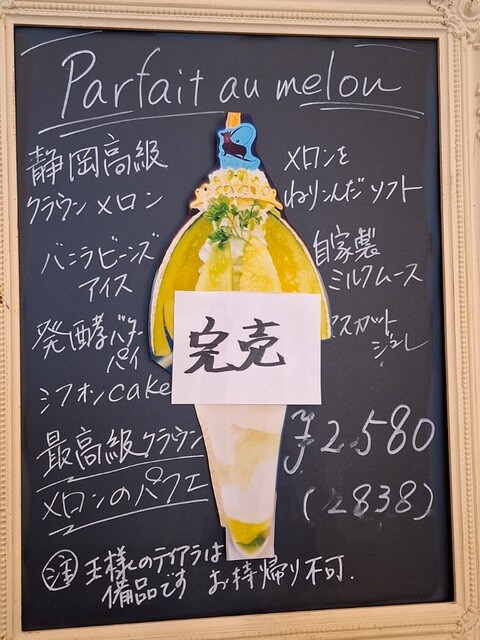 Parfait au melon
静岡高級
クラウンメロン
バニラビーンズ
アイス
発酵バター
パイ
シフォンcake
最高級クラウン
メロンのパフェ
メロンを
ねりこんだソフト
自家製
ミルクムース
マスカット
ジュレ
完売
¥2.580
(2838)
注 王様のティアラは
備品です お持帰り不可.